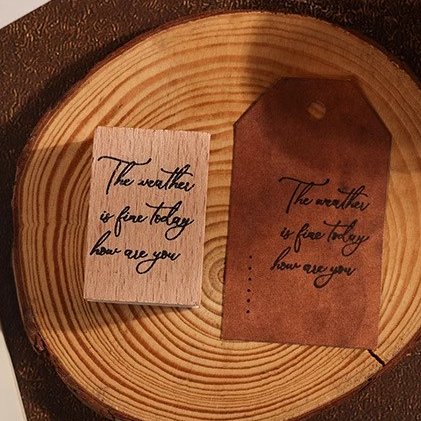 The weather
is fine today
how are you
The weather
is fine today
how are you